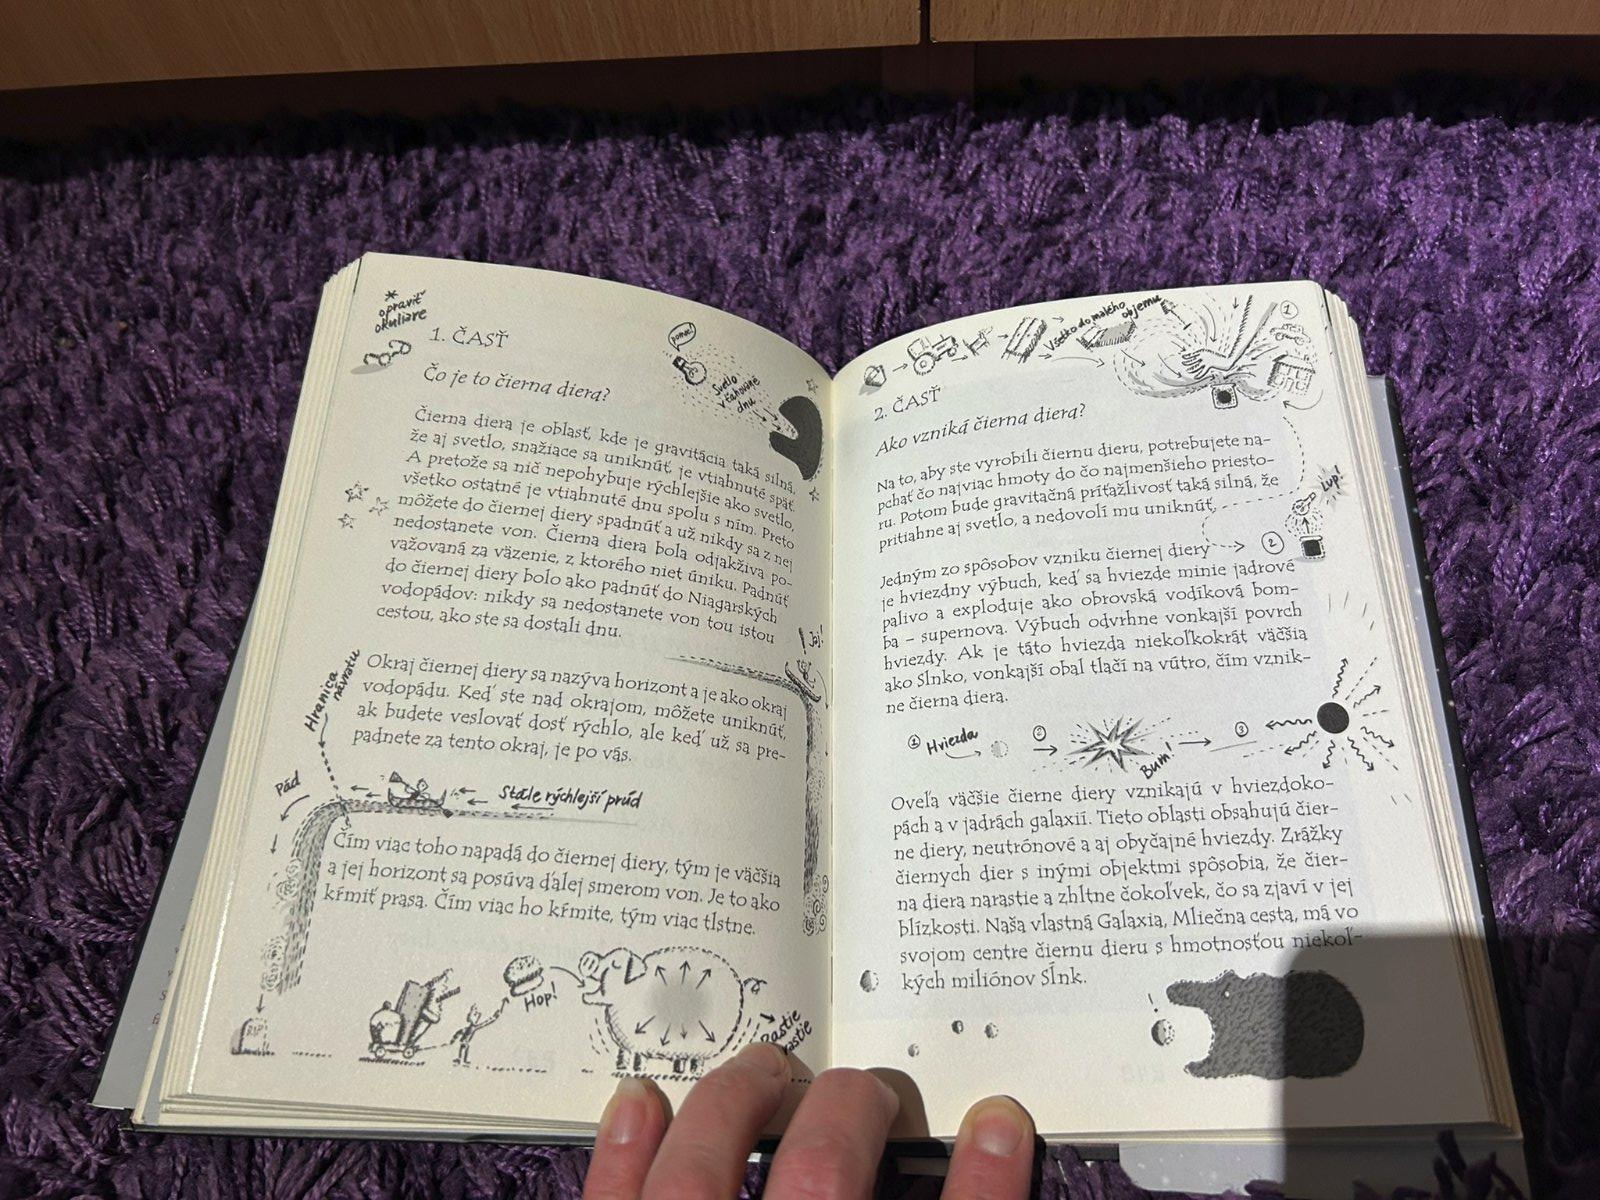 * opraviť
okuliare
1. ČASŤ
Čo je to čierna diera?
pomoc!
Svetlo
vťahované
dnu
Čierna diera je oblasť, kde je gravitácia taká silná,
že aj svetlo, snažiace sa uniknúť, je vtiahnuté späť.
A pretože sa nič nepohybuje rýchlejšie ako svetlo,
všetko ostatné je vtiahnuté dnu spolu s ním. Preto
môžete do čiernej diery spadnúť a už nikdy sa z nej
nedostanete von. Čierna diera bola odjakživa po-
važovaná za väzenie, z ktorého niet úniku. Padnúť
do čiernej diery bolo ako padnúť do Niagarských
vodopádov: nikdy sa nedostanete von tou istou
cestou, ako ste sa dostali dnu.
Jaj!
Okraj čiernej diery sa nazýva horizont a je ako okraj
vodopádu. Keď ste nad okrajom, môžete uniknúť,
ak budete veslovať dosť rýchlo, ale keď už sa pre-
padnete za tento okraj, je po vás.
Hranica
návratu
Pád
Stále rýchlejší prúd
Čím viac toho napadá do čiernej diery, tým je väčšia
a jej horizont sa posúva ďalej smerom von. Je to ako
kŕmiť prasa. Čím viac ho kŕmite, tým viac tlstne.
RIP
Hop!
Rastie
rastie
Všetko do malého
objemu
1
2. ČASŤ
Ako vzniká čierna diera?
Na to, aby ste vyrobili čiernu dieru, potrebujete na-
pchať čo najviac hmoty do čo najmenšieho priesto-
ru. Potom bude gravitačná príťažlivosť taká silná, že
pritiahne aj svetlo, a nedovolí mu uniknúť.
Lup!
2
Jedným zo spôsobov vzniku čiernej diery
je hviezdny výbuch, keď sa hviezde minie jadrové
palivo a exploduje ako obrovská vodíková bom-
ba – supernova. Výbuch odvrhne vonkajší povrch
hviezdy. Ak je táto hviezda niekoľkokrát väčšia
ako Slnko, vonkajší obal tlačí na vútro, čím vznik-
ne čierna diera.
1 Hviezda
2
Bum!
3
Oveľa väčšie čierne diery vznikajú v hviezdoko-
pách a v jadrách galaxií. Tieto oblasti obsahujú čier-
ne diery, neutrónové a aj obyčajné hviezdy. Zrážky
čiernych dier s inými objektmi spôsobia, že čier-
na diera narastie a zhltne čokoľvek, čo sa zjaví v jej
blízkosti. Naša vlastná Galaxia, Mliečna cesta, má vo
svojom centre čiernu dieru s hmotnosťou niekoľ-
kých miliónov Sĺnk.
!